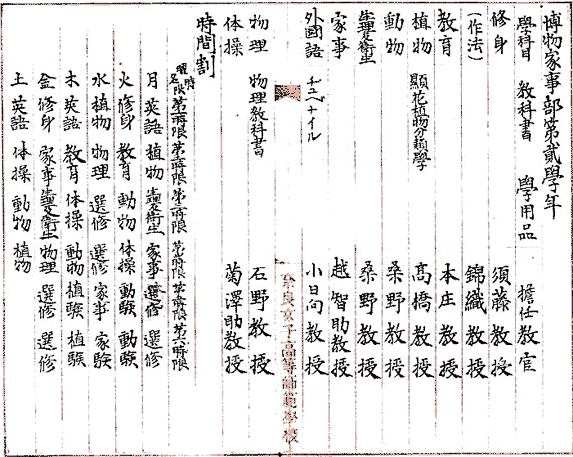 博物家事部第貳學年
學科目 教科書 學用品 擔任教官
修身 須藤教授
(作法) 錦織教授
教育 本庄教授
植物 顯花植物分類學 高橋教授
動物 桑野教授
生理及衛生 桑野教授
家事 越智助教授
外國語 チニベナイル 小日向教授
奈良女子高等師範學校
物理 物理教科書 石野教授
体操 菊澤助教授
時間割
曜名 時限 第一時限 第二時限 第三時限 第四時限 第五時限 第六時限
月 英語 植物 生理及衛生 家事 選修 選修
火 修身 教育 動物 体操 動驗 動驗
水 植物 物理 選修 選修 家事 家驗
木 英語 教育 体操 動物 植驗 植驗
金 修身 家事 生理及衛生 物理 選修 選修
土 英語 体操 動物 植物